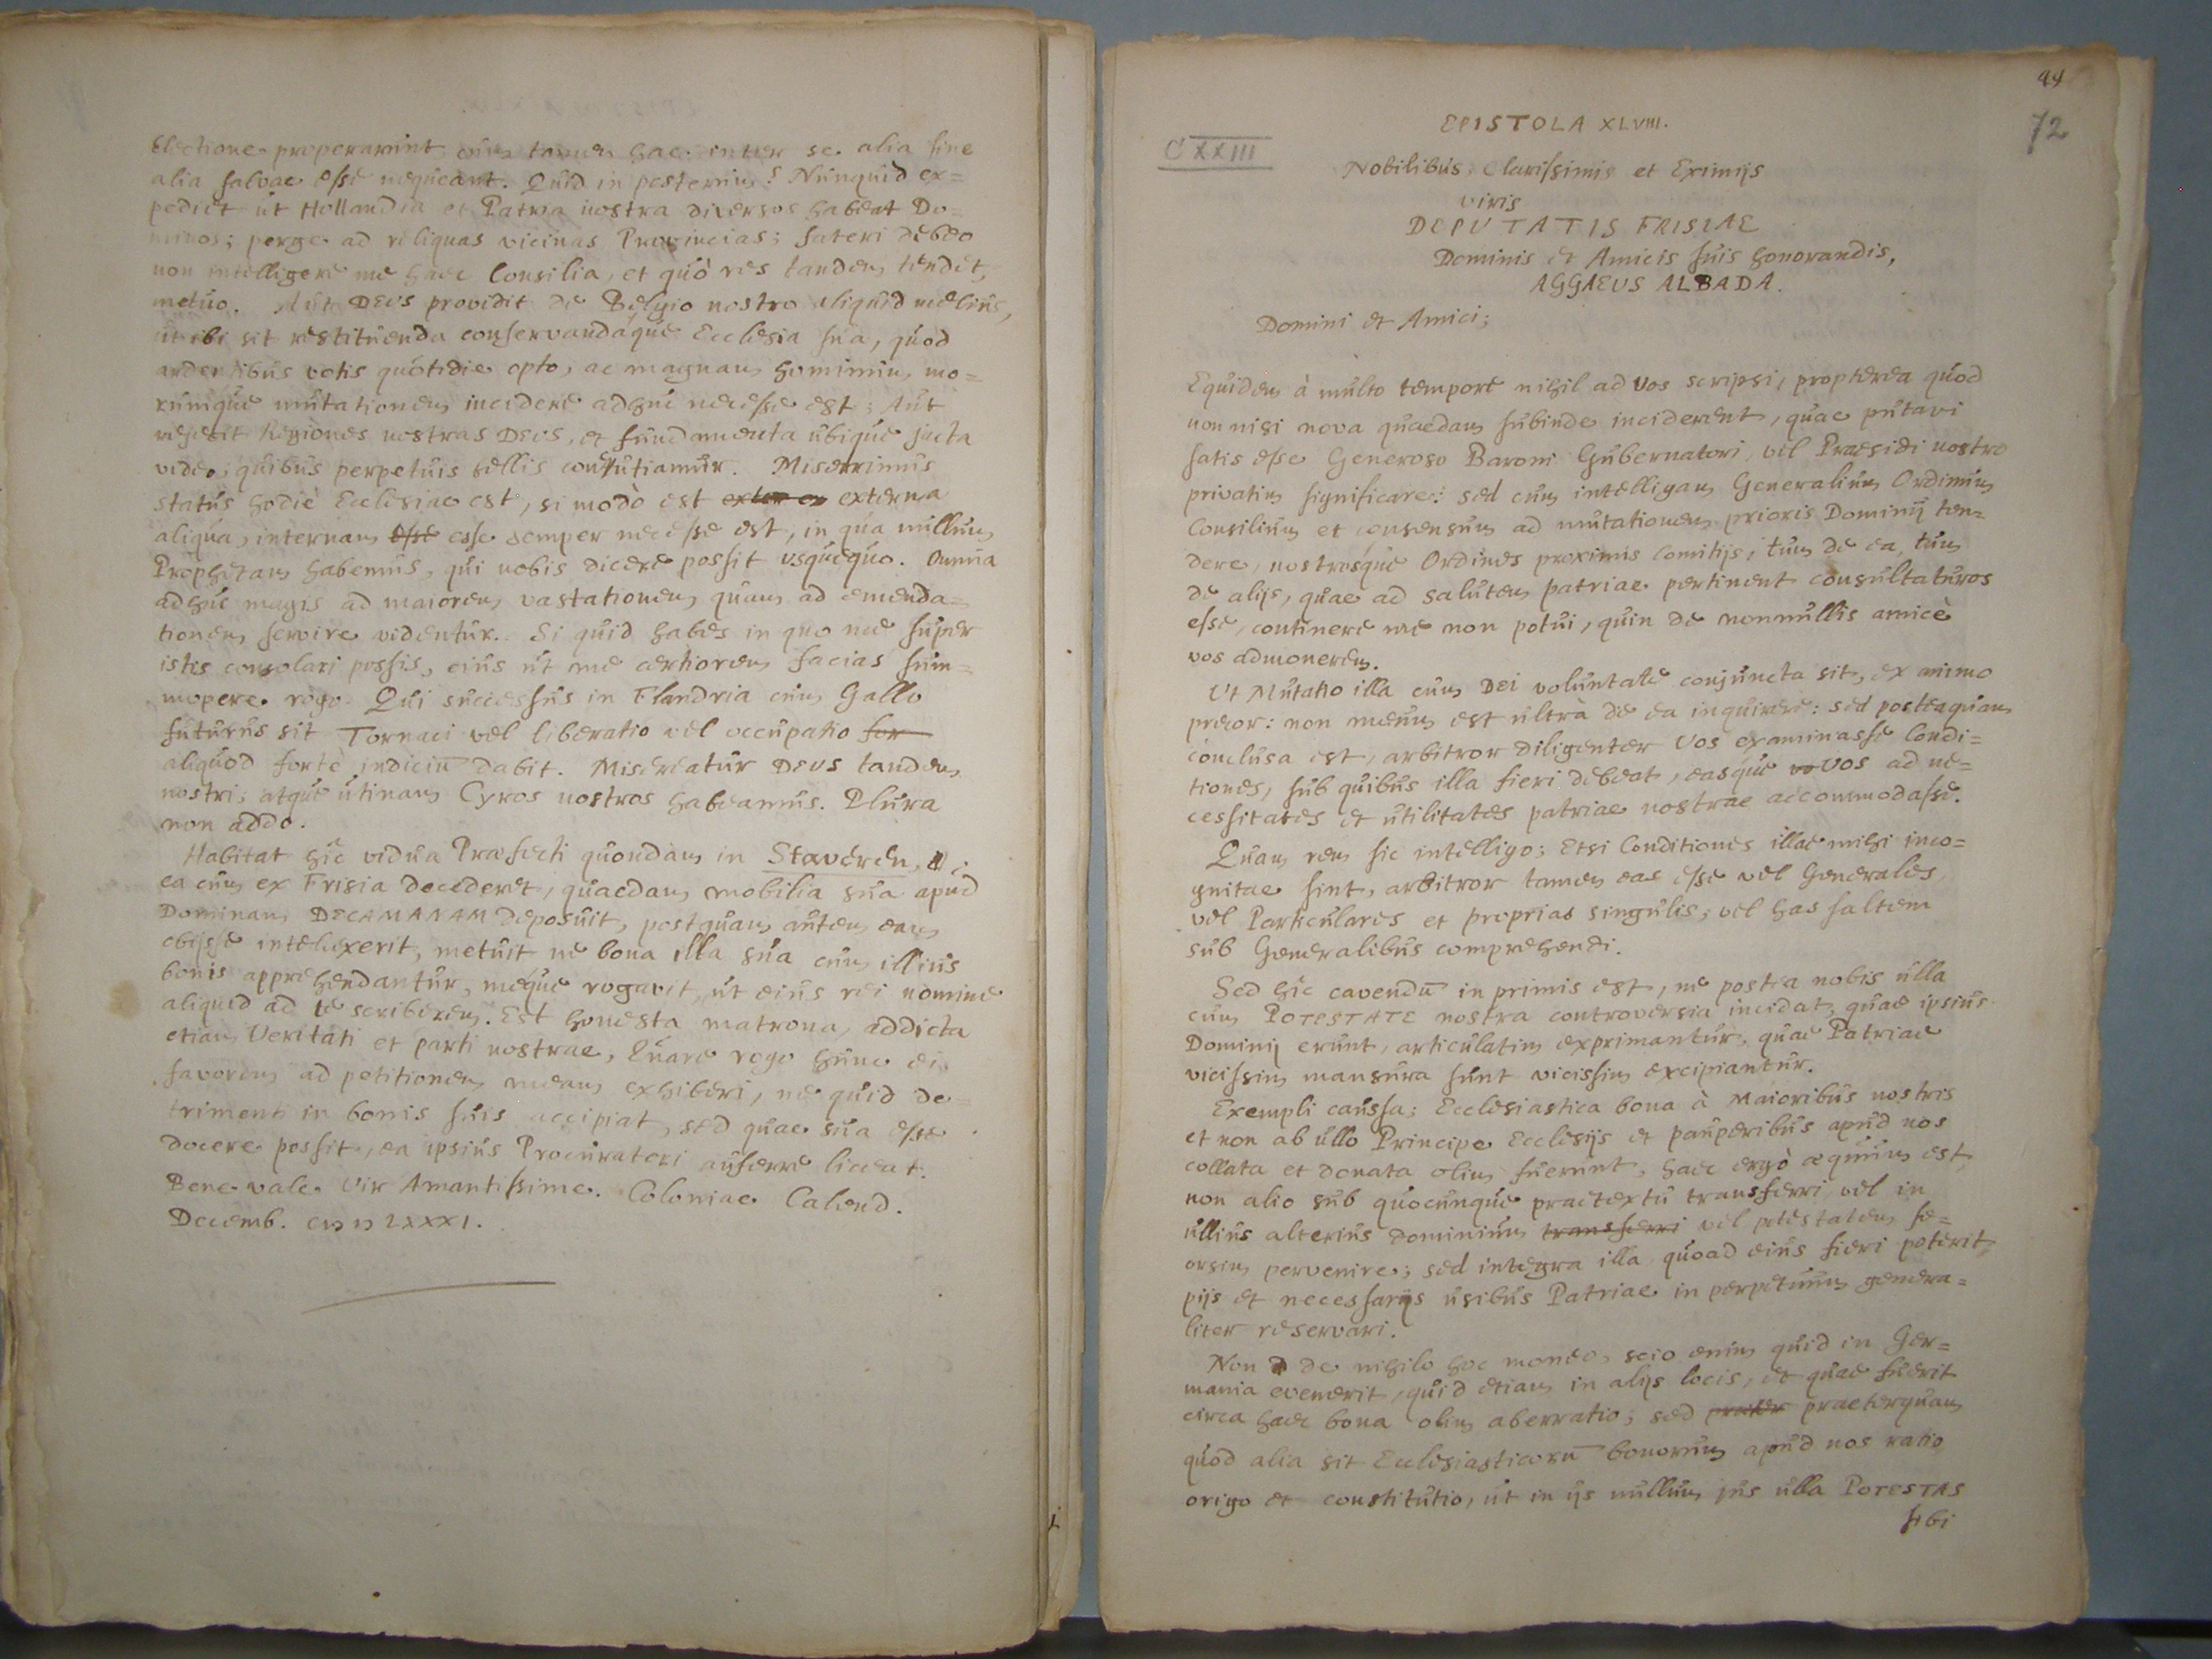 Electione properarint cum tamen hae inter se alia sine
alia salvae esse nequeant. Quid in posterum? Nunquid ex=
pediet ut Hollandia et Patria nostra diversos habeat Do=
minos; perge ad reliquas vicinas Provincias; fateri debeo
non intelligere me haec Consilia, et quò res tandem tendet,
metuo. Aut DEUS providit de Belgio nostro aliquid melius,
ut ibi sit restituenda conservandáque Ecclesia sua, quod
ardentibus votis quotidie opto, ac magnam hominum, mo=
rumque mutationem incidere adhuc necesse est; Aut
rejecit Regiones nostras DEUS, et fundamenta ubique jacta
video, quibus perpetuis bellis concutiamur. Miserrimus
status hodiè Ecclesiae est, si modò est externa
aliqua, internam esse esse semper necesse est, in qua nullum
Prophetam habemus, qui nobis dicere possit usquequo. Omnia
adhuc magis ad maiorem vastationem quam ad emenda=
tionem servire videntur. Si quid habes in quo me super
istis consolari possis, eius ut me certiorem facias sum=
mopere rogo. Qui successus in Flandria cum Gallo
futurus sit Tornaci vel liberatio vel occupatio for
aliquod fortè indiciū dabit. Misereatur DEUS tandem
nostri; atque utinam Cyros nostros habeamus. Plura
non addo.
Habitat hîc vidua Praefecti quondam in Staveren,
ea cum ex Frisia decederet, quaedam mobilia sua apud
Dominam DECAMANAM deposuit, postquam autem eam
obijsse intellexerit, metuit ne bona illa sua cum illius
bonis apprehendantur, meque rogavit, ut eius rei nomine
aliquid ad te scriberem. Est honesta matrona, addicta
etiam Veritati et parti nostrae, Quare rogo hunc ei
favorem ad petitionem meam exhiberi, ne quid de=
trimenti in bonis suis accipiat, sed quae sua esse
docere possit, ea ipsius Procuratori auferre liceat.
Bene vale Vir Amantissime. Coloniae Calend.
Decemb. CIↃ IↃ LXXXI.
94
72
EPISTOLA XLVIII.
CXXIII
Nobilibus Clarissimis et Eximijs
viris
DEPUTATIS FRISIAE
Dominis et Amicis suis honorandis,
AGGAEUS ALBADA.
Domini et Amici;
Equidem à multo tempore nihil ad Vos scripsi, propterea quod
non nisi nova quaedam subinde inciderent, quae putavi
satis esse Generoso Baroni Gubernatori, vel Praesidi nostro
privatim significare: sed cum intelligam Generalium Ordinum
Consilium et consensum ad mutationem prioris Dominij ten=
dere, nostrosque Ordines proximis Comitijs, tum de ea, tum
de alijs, quae ad salutem patriae pertinent consultaturos
esse, continere me non potui, quin de nonnullis amicè
vos admonerem.
Ut Mutatio illa cum Dei voluntate conjuncta sit, ex animo
precor: non meum est ultrà de ea inquirere: sed posteaquam
conclusa est, arbitror diligenter Vos examinasse Condi=
tiones, sub quibus illa fieri debeat, easque vo Vos ad ne=
cessitates et utilitates patriae nostrae accommodasse.
Quam rem sic intelligo; Etsi Conditiones illae mihi inco=
gnitae sint, arbitror tamen eas esse vel Generales,
vel Particulares et proprias singulis; vel has saltem
sub Generalibus comprehendi.
Sed hîc cavendū in primis est, ne postea nobis ulla
cum POTESTATE nostra controversia incidat, quae ipsius
Dominij erunt, articulatim exprimantur, quae Patriae
vicissim mansura sunt vicissim excipiantur.
Exempli caussa; Ecclesiastica bona à Maioribus nostris
et non ab ullo Principe Ecclesijs et pauperibus apud nos
collata et donata olim fuerunt, haec ergò aequum est,
non alio sub quocunque praetextu transferri vel in
ullius alterius dominium transferri vel potestatem se=
orsim pervenire; sed integra illa quoad eius fieri poterit,
pijs et necessarijs usibus Patriae in perpetuum genera=
liter reservari.
Non de nihilo hoc moneo, scio enim quid in Ger=
mania evenerit, quid etiam in alijs locis, et quae fuerit
circa haec bona olim aberratio; sed praeter praeterquam
quod alia sit Ecclesiasticorū bonorum apud nos ratio
origo et constitutio, ut in ijs nullum jus ulla POTESTAS
sibi